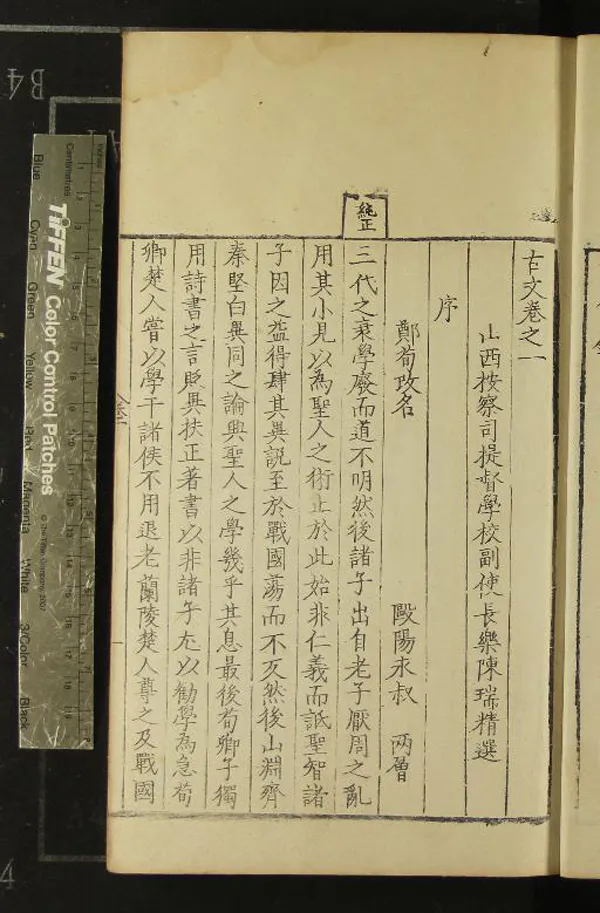 古文卷之一
山西按察司提督學校副使長樂陳瑞精選
序
鄭荀改名 歐陽永叔 兩層
三代之衰學廢而道不明然後諸子出自老子厭周之亂
用其小見以為聖人之術止於此始非仁義而詆聖智諸
子因之益得肆其異說至於戰國蕩而不反然後山淵齊
秦堅白異同之論興聖人之學幾乎其息最後荀卿子獨
用詩書之言貶異扶正著書以非諸子尤以勸學為急荀
卿楚人嘗以學干諸侯不用退老蘭陵楚人尊之及戰國
純正
B4
TIFFEN Color Control Patches
© The Tiffen Company, 2007
Centimetres
Blue
Cyan
Green
Yellow
Red
Magenta
White
3/Color
Black